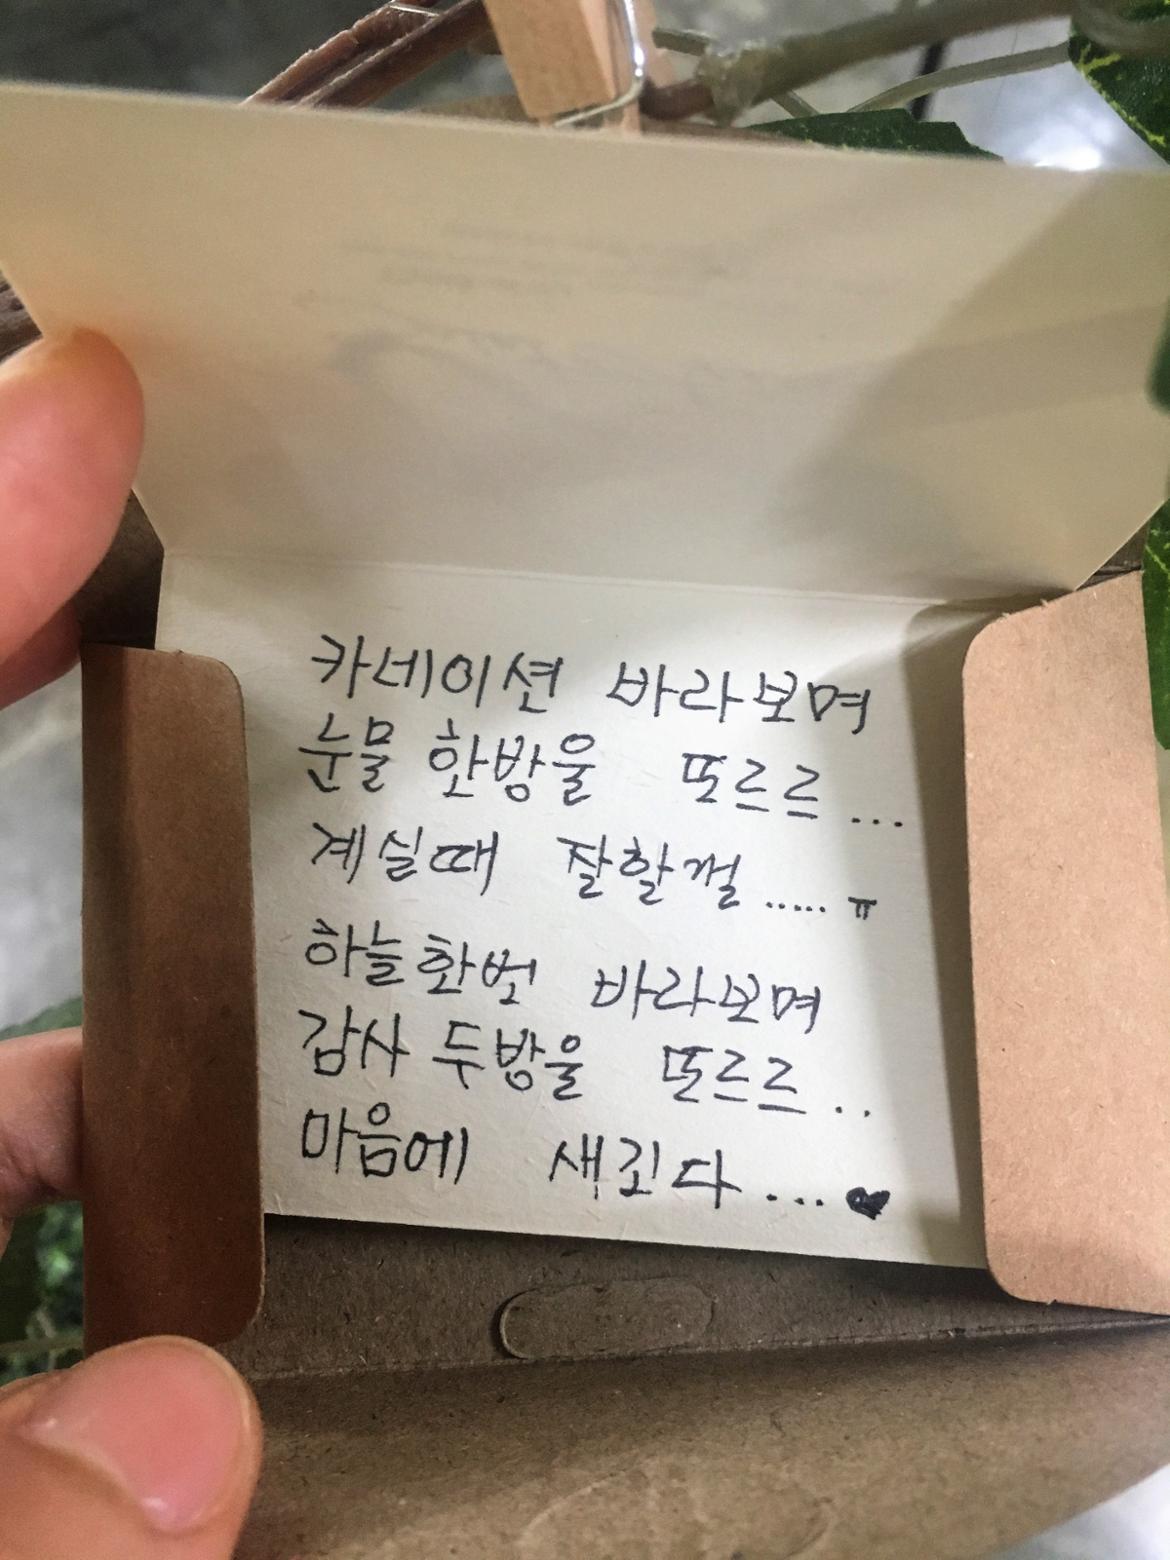 카네이션 바라보며
눈물 한방울 또르르...
계실때 잘할껄.....ㅠ
하늘한번 바라보며
감사 두방울 또르르..
마음에 새긴다...♥